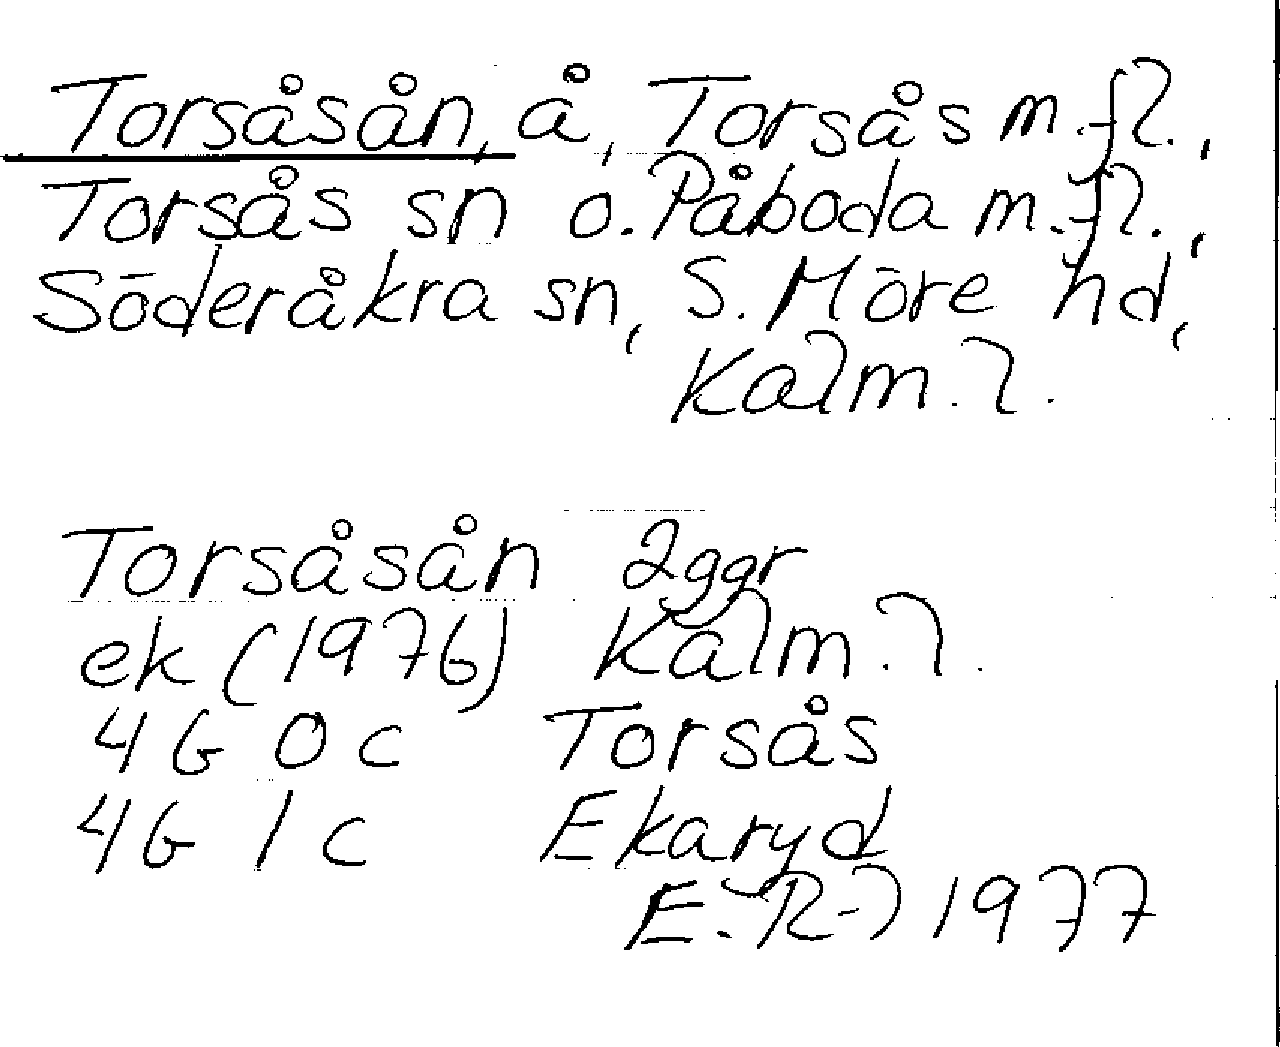 Torsåsån, å, Torsås m.fl.,
Torsås sn o. Påboda m.fl.,
Söderåkra sn, S. Möre hd,
Kalm. l.
Torsåsån 2ggr
ek (1976) Kalm. l.
4G 0c Torsås
4G 1c Ekaryd
E. R-l 1977